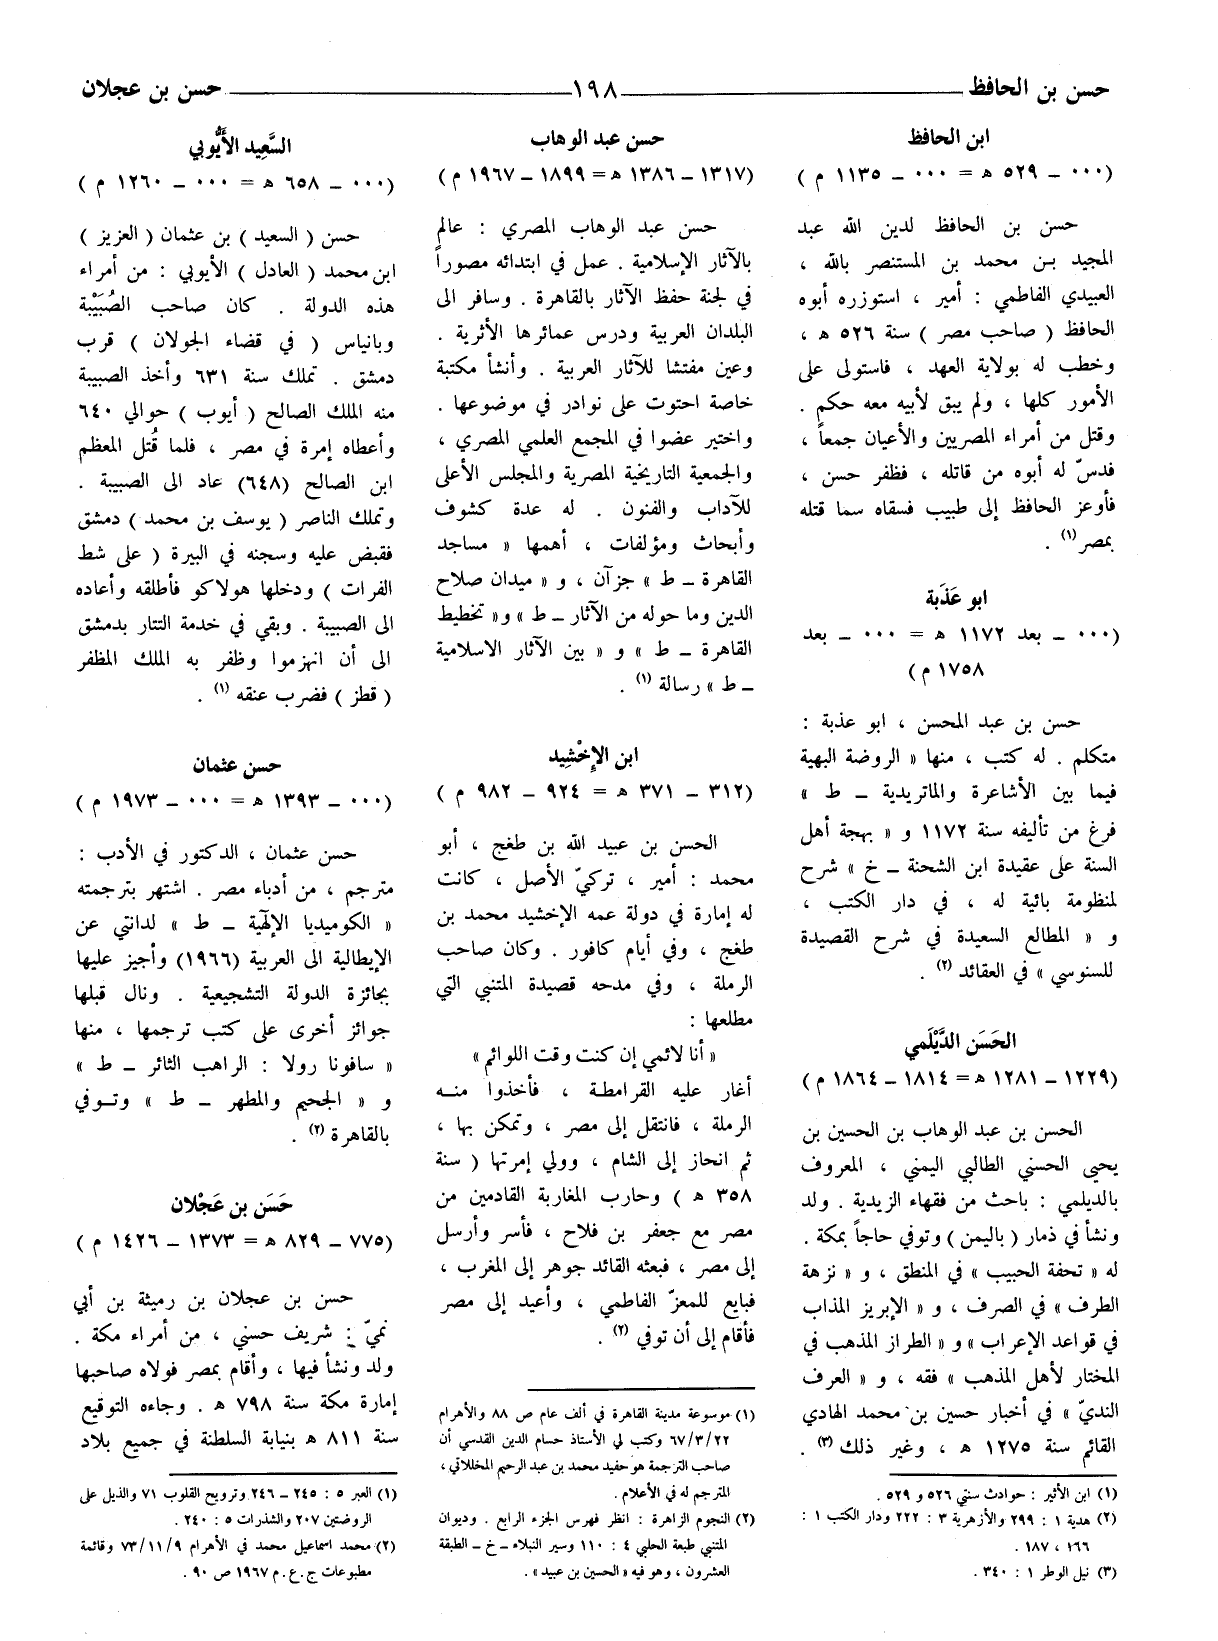 حسن بن الحافظ ١٩٨ حسن بن عجلان
ابن الحافظ
(٠٠٠ ــ ٥٢٩ ه = ٠٠٠ ــ ١١٣٥ م)
حسن بن الحافظ لدين الله عبد
المجيد بـن محمد بن المستنصر بالله ،
العبيدي الفاطمي : أمير ، استوزره أبوه
الحافظ ( صاحب مصر ) سنة ٥٢٦ ه ،
وخطب له بولاية العهد ، فاستولى على
الأمور كلها ، ولم يبق لأبيه معه حكم .
وقتل من أمراء المصريين والأعيان جمعاً ،
فدسّ له أبوه من قاتله ، فظفر حسن ،
فأوعز الحافظ إلى طبيب فسقاه سما قتله
بمصر (١) .
ابو عَذَبة
(٠٠٠ ــ بعد ١١٧٢ ه = ٠٠٠ ــ بعد
١٧٥٨ م)
حسن بن عبد المحسن ، ابو عذبة :
متكلم . له كتب ، منها « الروضة البهية
فيما بين الأشاعرة والماتريدية ــ ط »
فرغ من تأليفه سنة ١١٧٢ و « بهجة أهل
السنة على عقيدة ابن الشحنة ــ خ » شرح
لمنظومة بائية له ، في دار الكتب ،
و « المطالع السعيدة في شرح القصيدة
للسنوسي » في العقائد (٢) .
الحَسَن الدَّيْلَمي
(١٢٢٩ ــ ١٢٨١ ه = ١٨١٤ ــ ١٨٦٤ م)
الحسن بن عبد الوهاب بن الحسين بن
يحيى الحسني الطالبي اليمني ، المعروف
بالديلمي : باحث من فقهاء الزيدية . ولد
ونشأ في ذمار ( باليمن ) وتوفي حاجاً بمكة .
له « تحفة الحبيب » في المنطق ، و « نزهة
الطرف » في الصرف ، و « الإبريز المذاب
في قواعد الإعراب » و « الطراز المذهب في
المختار لأهل المذهب » فقه ، و « العرف
النديّ » في أخبار حسين بن محمد الهادي
القائم سنة ١٢٧٥ ه ، وغير ذلك (٣) .
(١) ابن الأثير : حوادث سنتي ٥٢٦ و ٥٢٩ .
(٢) هدية ١ : ٢٩٩ والأزهرية ٣ : ٢٢٢ ودار الكتب ١ :
١٦٦ ، ١٨٧ .
(٣) نيل الوطر ١ : ٣٤٠ .
حسن عبد الوهاب
(١٣١٧ ــ ١٣٨٦ ه = ١٨٩٩ ــ ١٩٦٧ م)
حسن عبد الوهاب المصري : عالم
بالآثار الإسلامية . عمل في ابتدائه مصوراً
في لجنة حفظ الآثار بالقاهرة . وسافر الى
البلدان العربية ودرس عمائرها الأثرية .
وعين مفتشا للآثار العربية . وأنشأ مكتبة
خاصة احتوت على نوادر في موضوعها .
واختير عضوا في المجمع العلمي المصري ،
والجمعية التاريخية المصرية والمجلس الأعلى
للآداب والفنون . له عدة كشوف
وأبحاث ومؤلفات ، أهمها « مساجد
القاهرة ــ ط » جزآن ، و « ميدان صلاح
الدين وما حوله من الآثار ــ ط » و« تخطيط
القاهرة ــ ط » و « بين الآثار الاسلامية
ــ ط » رسالة (١) .
ابن الإخْشِيد
(٣١٢ ــ ٣٧١ ه = ٩٢٤ ــ ٩٨٢ م)
الحسن بن عبيد الله بن طغج ، أبو
محمد : أمير ، تركيّ الأصل ، كانت
له إمارة في دولة عمه الإخشيد محمد بن
طغج ، وفي أيام كافور . وكان صاحب
الرملة ، وفي مدحه قصيدة المتنبي التي
مطلعها :
« أنا لائمي إن كنت وقت اللوائم »
أغار عليه القرامطة ، فأخذوا منـه
الرملة ، فانتقل إلى مصر ، وتمكن بها ،
ثم انحاز إلى الشام ، وولي إمرتها ( سنة
٣٥٨ ه ) وحارب المغاربة القادمين من
مصر مع جعفر بن فلاح ، فأسر وأرسل
إلى مصر ، فبعثه القائد جوهر إلى المغرب ،
فبايع للمعزّ الفاطمي ، وأعيد إلى مصر
فأقام إلى أن توفي (٢) .
(١) موسوعة مدينة القاهرة في ألف عام ص ٨٨ والأهرام
٦٧/٣/٢٢ وكتب لي الأستاذ حسام الدين القدسي أن
صاحب الترجمة هو حفيد محمد بن عبد الرحيم المخللاتي ،
المترجم له في الأعلام .
(٢) النجوم الزاهرة : انظر فهرس الجزء الرابع . وديوان
المتنبي طبعة الحلبي ٤ : ١١٠ وسير النبلاء ــ خ ــ الطبقة
العشرون ، وهو فيه « الحسين بن عبيد » .
السَّعِيد الأَيُّوبي
(٠٠٠ ــ ٦٥٨ ه = ٠٠٠ ــ ١٢٦٠ م)
حسن ( السعيد ) بن عثمان ( العزيز )
ابن محمد ( العادل ) الأيوبي : من أمراء
هذه الدولة . كان صاحب الصُبَيْبة
وبانياس ( في قضاء الجولان ) قرب
دمشق . تملك سنة ٦٣١ وأخذ الصبيبة
منه الملك الصالح ( أيوب ) حوالي ٦٤٠
وأعطاه إمرة في مصر ، فلما قُتل المعظم
ابن الصالح (٦٤٨) عاد الى الصبيبة .
وتملك الناصر ( يوسف بن محمد ) دمشق
فقبض عليه وسجنه في البيرة ( على شط
الفرات ) ودخلها هولاكو فأطلقه وأعاده
الى الصبيبة . وبقي في خدمة التتار بدمشق
الى أن انهزموا وظفر به الملك المظفر
( قطز ) فضرب عنقه (١) .
حسن عثمان
(٠٠٠ ــ ١٣٩٣ ه = ٠٠٠ ــ ١٩٧٣ م)
حسن عثمان ، الدكتور في الأدب :
مترجم ، من أدباء مصر . اشتهر بترجمته
« الكوميديا الإلٓهية ــ ط » لدانتي عن
الإيطالية الى العربية (١٩٦٦) وأجيز عليها
بجائزة الدولة التشجيعية . ونال قبلها
جوائز أخرى على كتب ترجمها ، منها
« سافونا رولا : الراهب الثائر ــ ط »
و « الجحيم والمطهر ــ ط » وتـوفي
بالقاهرة (٢) .
حَسَن بن عَجْلان
(٧٧٥ ــ ٨٢٩ ه = ١٣٧٣ ــ ١٤٢٦ م)
حسن بن عجلان بن رميثة بن أبي
نميّ : شريف حسني ، من أمراء مكة .
ولد ونشأ فيها ، وأقام بمصر فولاه صاحبها
إمارة مكة سنة ٧٩٨ ه . وجاءه التوقيع
سنة ٨١١ ه بنيابة السلطنة في جميع بلاد
(١) العبر ٥ : ٢٤٥ ــ ٢٤٦ وترويح القلوب ٧١ والذيل على
الروضتين ٢٠٧ والشذرات ٥ : ٢٤٠ .
(٢) محمد اسماعيل محمد في الأهرام ٧٣/١١/٩ وقائمة
مطبوعات ج . ع . م ١٩٦٧ ص ٩٠ .